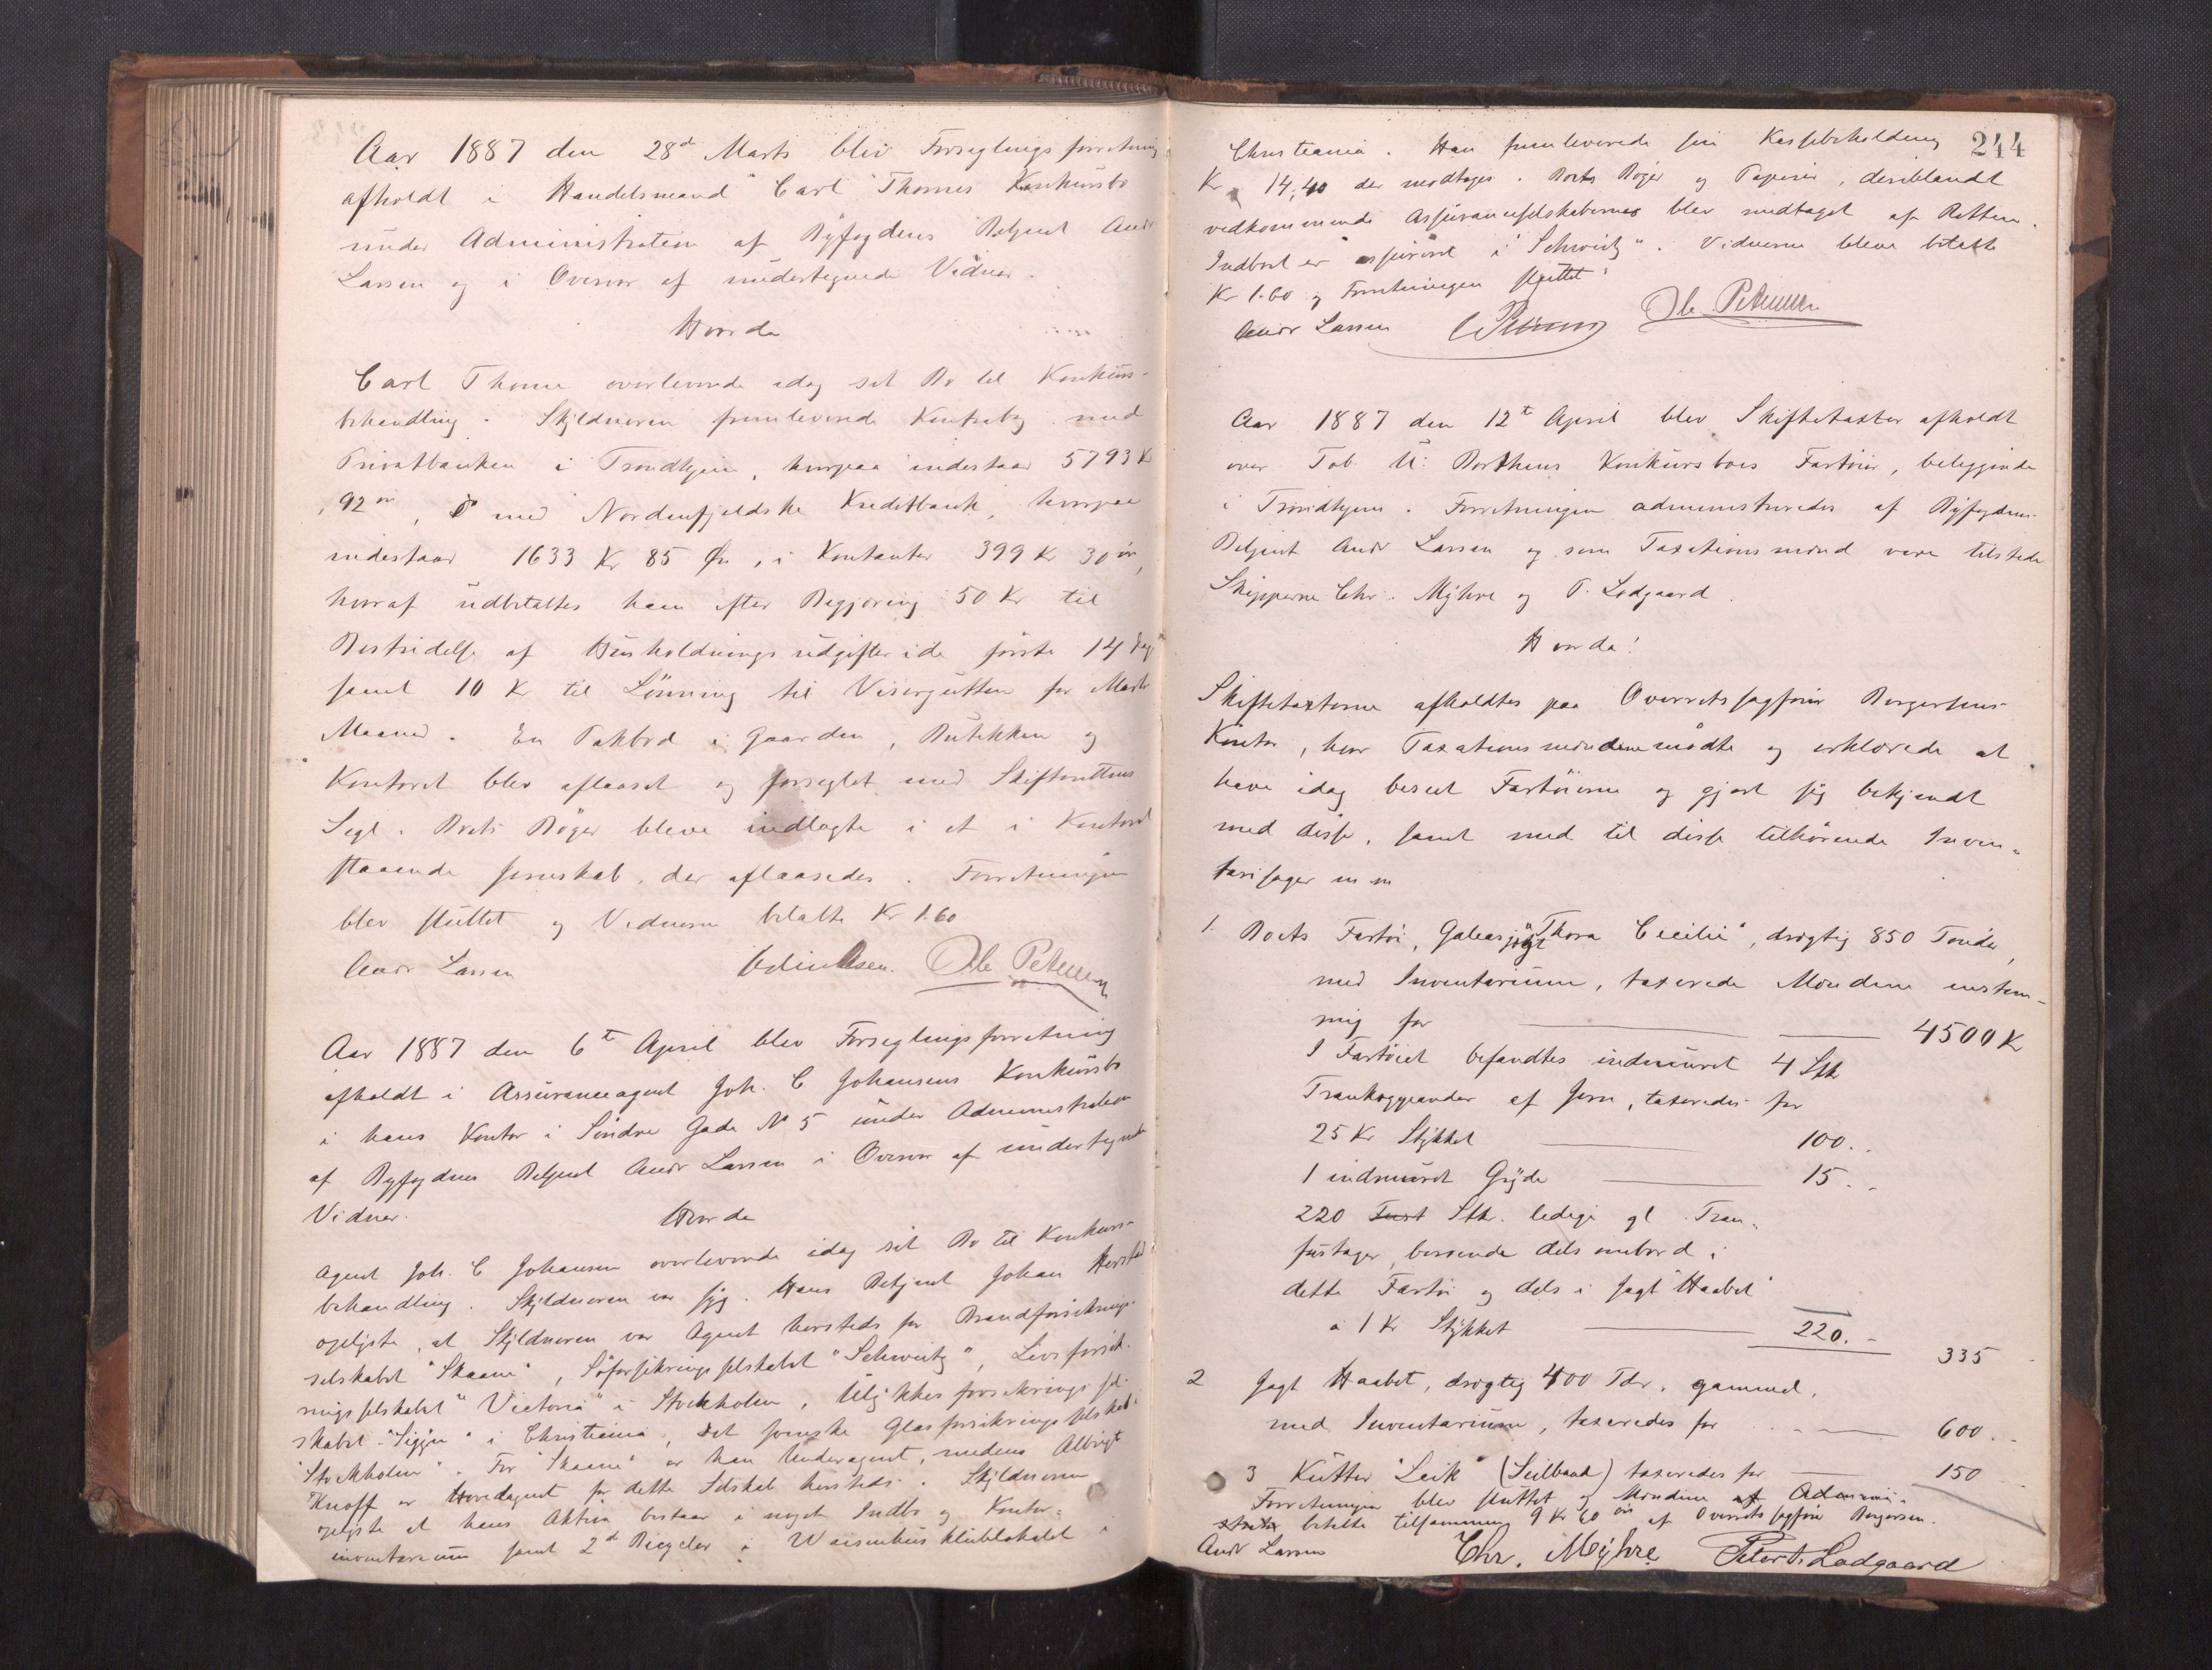 Aar 1887 den 28d Marts blev Forseglingsforretning
afholdt i Handelsmand Carl Thornes Konkursbo
under Administration af Byfogdens Betjent Andr
Larsen og i Overvær af undertegnede Vidner.
Hvorda
Carl Thorne overleverede idag sit Bo til Konkurs-
behandling. Skyldneren fremleverede Kontrabog med
Privatbanken i Trondhjem, hvorpaa indestaar 5793 Kr
92 ør, do med Nordenfjeldske Kreditbank, hvorpaa
indestaar 1633 Kr 85 Ør, i Kontanter 399 Kr 30 ør,
hvoraf udbetaltes ham efter Begjæring 50 Kr til
Bestridelse af Husholdningsudgifter i de første 14 Dage
samt 10 Kr til Lønning til Visergutten for Marts
Maaned. En Pakbod i Gaarden, Butikken og
Kontoret blev aflaaset og forseglet med Skifterettens
Segl. Boets Bøger bleve indlagte i et i Kontoret
staaende Jernskab, der aflaasedes. Forretningen
blev sluttet og Vidnerne betalte Kr 1.60
Andr Larsen Ole Petersen
Aar 1887 den 6t April blev Forseglingsforretning
afholdt i Assuranceagent Joh. C Johansens Konkursbo
i hans Kontor i Søndre Gade No 5 under Administration
af Byfogdens Betjent Andr Larsen i Overvær af undertegnede
Vidner.
Hvorda
Agent Joh. C Johansen overleverede idag sit Bo til Konkurs-
behandling. Skyldneren var syg. Hans Betjent Johan
oplyste, at Skyldneren var Agent hersteds for Brandforsikrings-
selskabet "Skaane", Søforsikringsselskabet "Schweitz", Livsforsik-
ringsselskabet "Victoria" i Stockholm, Ulykkesforsikringssel-
skabet "Sigyn" i Christiania, det svenske Glasforsikringsselskab i
Stockholm. For "Skaane" er han Underagent, medens Albrigt
Knoff er Hovedagent for dette Selskab hersteds. Skyldneren
oplyste at hans Aktiva bestaar i noget Indbo og Kontor-
inventarium samt 2d Bicycler i Waisenhusklublokalet i
244
Christiania. Han fremleverede sin Kassebeholdning
Kr 14,40 der modtoges. Boets Bøger og Papirer, deriblandt
vedkommende Assuranceselskabernes blev medtaget af Retten.
Indboet er assureret i "Schweitz". Vidnerne bleve betalte
Kr 1.60 og Forretningen sluttet
Andr Larsen Ole Petersen
Aar 1887 den 12t April blev Skiftetaxter afholdt
over Tob. U. Borthens Konkursboes Fartøier, beliggende
i Trondhjem. Forretningen administreredes af Byfogdens
Betjent Andr Larsen og som Taxationsmænd vare tilstede
Skipperne Chr. Myhre og P. Ladgaard.
Hvorda!
Skiftetaxterne afholdtes paa Overretssagfører Borgersens
Kontor, hvor Taxationsmændene mødte og erklærede at
have idag beseet Fartøierne og gjort sig bekjendt
med disse, samt med til disse tilhørende Inven-
tarisager m m
1. Boets Fartøi, Galeasjagt "Thora Cecilie", drægtig 850 Tønder,
med Inventarium, taxerede Mændene enstem-
mig for 4500 Kr
I Fartøiet befandtes indmuret 4 Stk
Trankoggeander af Jern, taxeredes for
25 Kr Stykket 100..
1 indmuret Gryde 15..
220 Stk. ledige gl. Tran-
fustager, beroende dels ombord i
dette Fartøi og dels i Jagt "Haabet"
a 1 Kr Stykket 220.- 335
2 Jagt Haabet, drægtig 400 Tdr. gammel,
med Inventarium, taxeredes for 600.
3 Kutter "Leik" (Seilbaad) taxeredes for 150
Forretningen blev sluttet og Mændene af Admini-
stratr betalte tilsammen 9 Kr 60 ør af Overretssagfører Borgersen.
Andr Larsen Chr. Myhre Peter A. Ladgaard